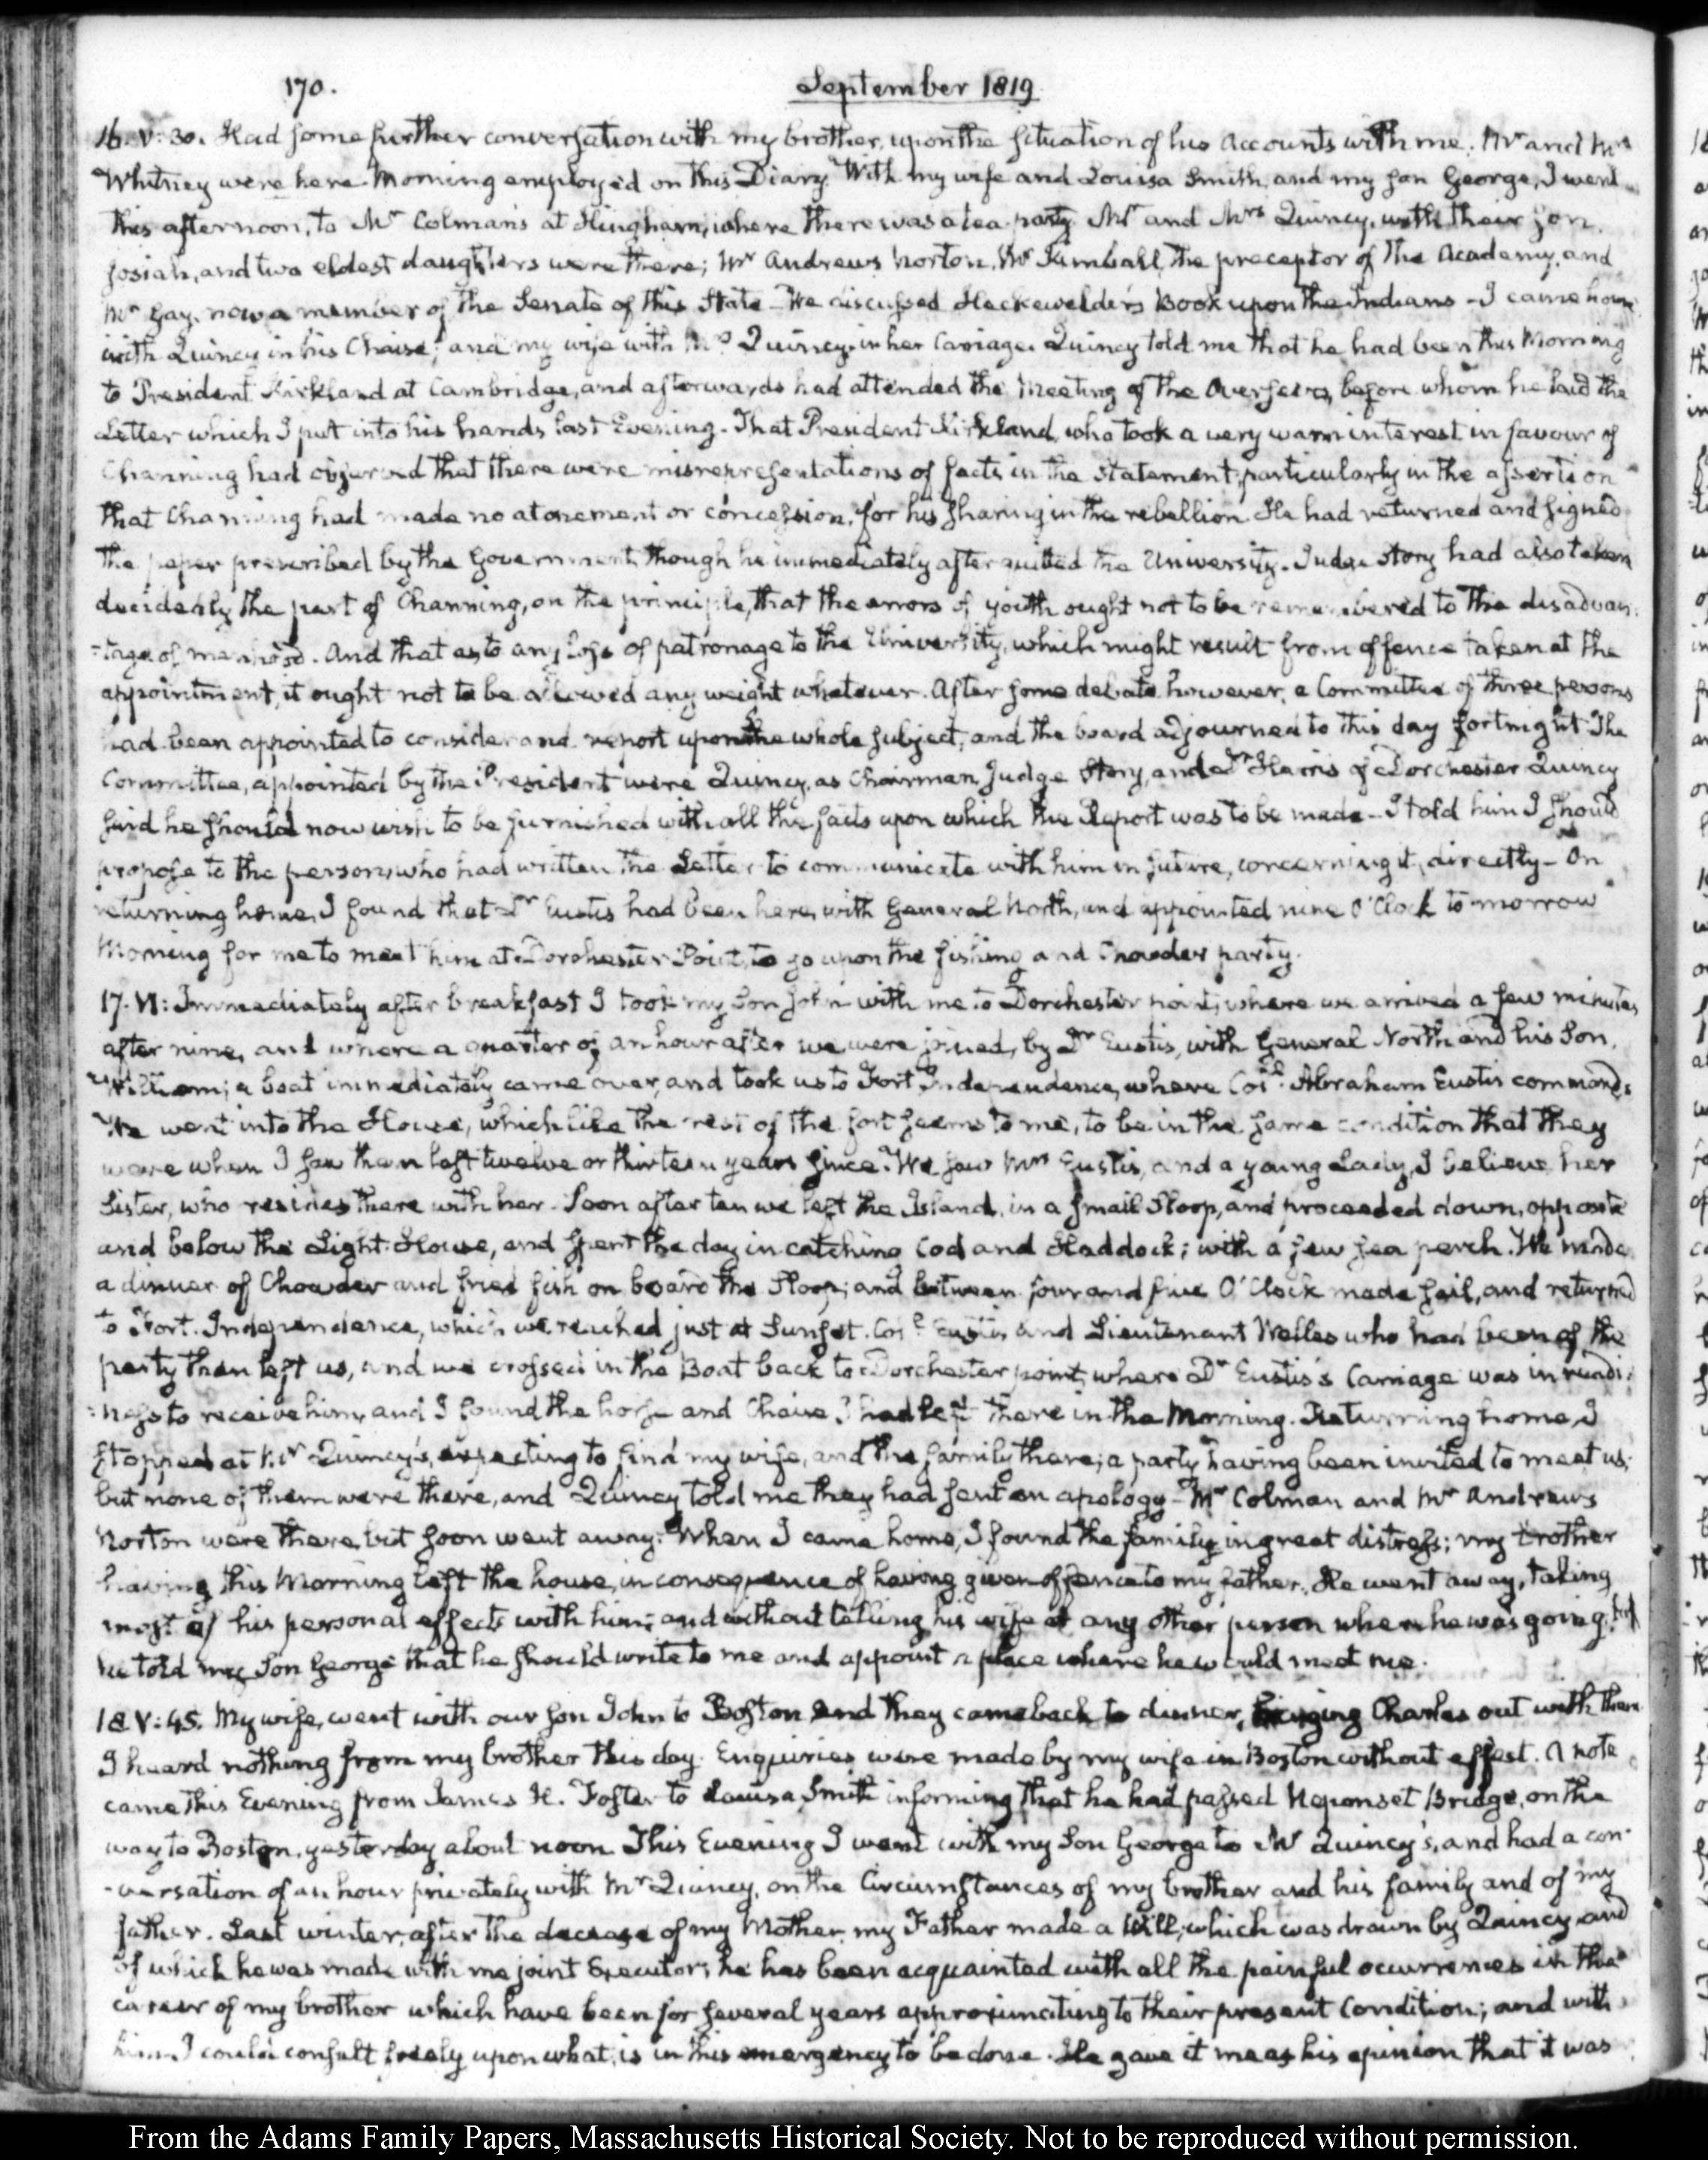 170.
September 1819
16. V: 30. Had some further conversation with my brother, upon the situation of his Accounts with me. Mr and Mrs
Whitney were here. Morning employed on this Diary. With my wife and Louisa Smith, and my son George, I went
this afternoon, to Mr Colman's at Hingham, where there was a tea party. Mr and Mrs Quincy, with their son
Josiah, and two eldest daughters were there; Mr Andrews Norton, Mr Kimball, the preceptor of the Academy, and
Mr Gay, now a member of the Senate of this State — We discussed Heckewelder's Book upon the Indians — I came home
with Quincy in his Chaise; and my wife with Mrs Quincy, in her Carriage. Quincy told me that he had been this Morning
to President Kirkland at Cambridge, and afterwards had attended the Meeting of the Overseers, before whom he laid the
Letter which I put into his hands last Evening. That President Kirkland, who took a very warm interest in favour of
Channing had observed that there were misrepresentations of facts in the statement, particularly in the assertion
that Channing had made no atonement or concession, for his sharing in the rebellion. He had returned and signed
the paper prescribed by the Government, though he immediately after quitted the University. Judge Story had also taken
decidedly the part of Channing, on the principle, that the errors of youth ought not to be remembered to the disadvan-
-tage of manhood. And that as to any loss of patronage to the University, which might result from offence taken at the
appointment, it ought not to be allowed any weight whatever. After some debate, however, a Committee of three persons
had been appointed to consider and report upon the whole subject, and the board adjourned to this day fortnight. The
Committee, appointed by the President were Quincy, as Chairman, Judge Story, and Dr Harris of Dorchester. Quincy
said he should now wish to be furnished with all the facts upon which the Report was to be made — I told him I should
propose to the person, who had written the Letter to communicate with him in future, concerning it, directly — On
returning home, I found that Dr Eustis had been here, with General North, and appointed nine O'Clock to-morrow
Morning for me to meet him at Dorchester Point, to go upon the fishing and Chowder party.
17. VI: Immediately after breakfast I took my Son John with me to Dorchester point, where we arrived a few minutes
after nine, and where a quarter of an hour after we were joined, by Dr Eustis, with General North and his Son,
William; a boat immediately came over, and took us to Fort Independence, where Col. Abraham Eustis commands.
We went into the House, which like the rest of the fort seems to me, to be in the same condition that they
were when I saw them last twelve or thirteen years since. We saw Mrs Eustis, and a young Lady, I believe her
Sister, who resides there with her. Soon after ten we left the Island, in a small Sloop, and proceeded down, opposite
and below the Light-House, and spent the day in catching Cod and Haddock; with a few sea perch. We made
a dinner of Chowder and fried fish on board the Sloop; and between four and five O'Clock made sail, and returned
to Fort Independence, which we reached just at Sunset. Col. Eustis and Lieutenant Welles who had been of the
party then left us, and we crossed in the Boat back to Dorchester point, where Dr Eustis's Carriage was in readi-
-ness to receive him, and I found the horse and Chaise I had left there in the Morning. Returning home, I
stopped at Mr Quincy's, expecting to find my wife, and the family there; a party having been invited to meet us;
but none of them were there, and Quincy told me they had sent an apology — Mr Colman and Mr Andrews
Norton were there, but soon went away. When I came home, I found the family in great distress; my brother
having this Morning left the house, in consequence of having given offence to my father. He went away, taking
most of his personal effects with him; and without telling his wife or any other person where he was going; but
he told my Son George that he should write to me and appoint a place where he would meet me.
18 V: 45. My wife, went with our son John to Boston and they came back to dinner, bringing Charles out with them
I heard nothing from my brother this day. Enquiries were made by my wife in Boston without effect. A note
came this Evening from James H. Foster to Louisa Smith informing that he had passed Neponset Bridge, on the
way to Boston, yesterday about noon. This Evening I went with my Son George to Mr Quincy's, and had a con-
-versation of an hour privately with Mr Quincy, on the Circumstances of my brother and his family and of my
father. Last winter, after the decease of my Mother, my Father made a Will, which was drawn by Quincy, and
of which he was made with me joint Executor; he has been acquainted with all the painful occurrences in the
career of my brother which have been for several years approximating to their present Condition; and with
him I could consult freely upon what is in this emergency to be done. He gave it me as his opinion that it was
From the Adams Family Papers, Massachusetts Historical Society. Not to be reproduced without permission.